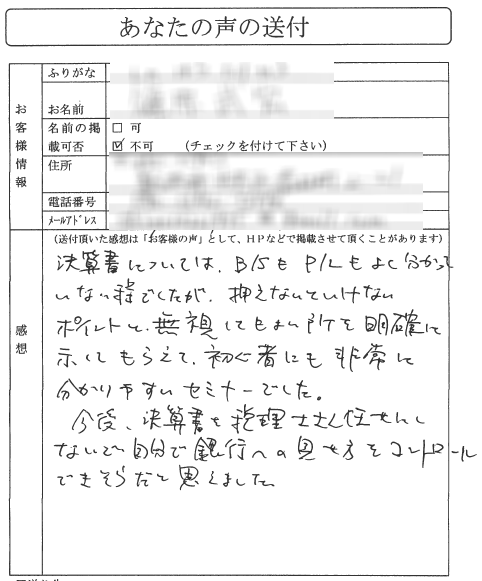 あなたの声の送付
お客様情報
ふりがな
お名前
名前の掲載可否
□ 可
☑ 不可 (チェックを付けて下さい)
住所
電話番号
メールアドレス
感想
(送付頂いた感想は「お客様の声」として、HPなどで掲載させて頂くことがあります)
決算書については、B/SもP/Lもよく分かって
いない程でしたが、押えないといけない
ポイントと、無視してもよい所を明確に
示してもらえて、初心者にも非常に
分かりやすいセミナーでした。
今後、決算書を税理士さん任せにし
ないで自分で銀行への見せ方をコントロール
できそうだと思えました。